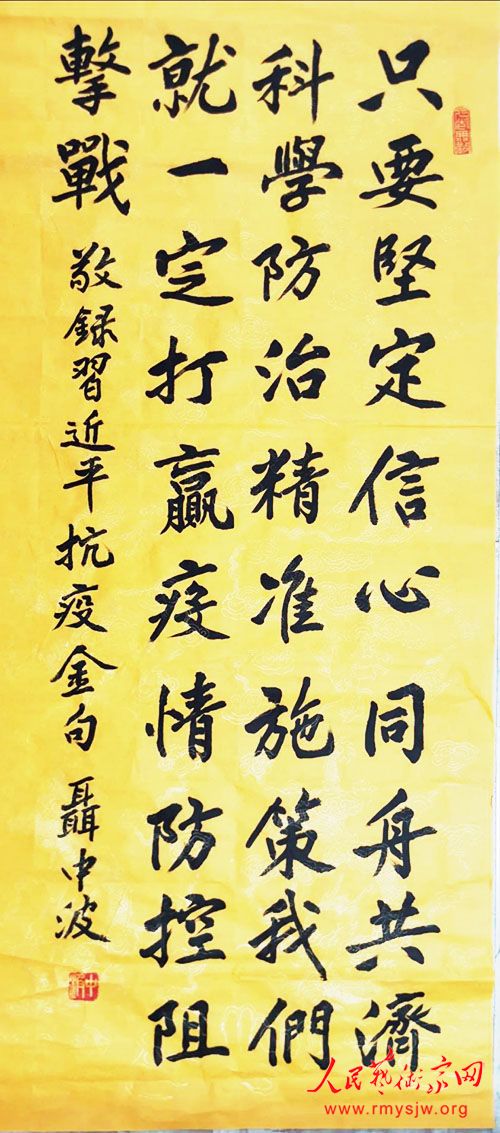 只要堅定信心同舟共濟
科學防治精准施策我們
就一定打贏疫情防控阻
擊戰
敬録習近平抗疫金句
聶中波
人民藝術家网
www.rmysjw.org